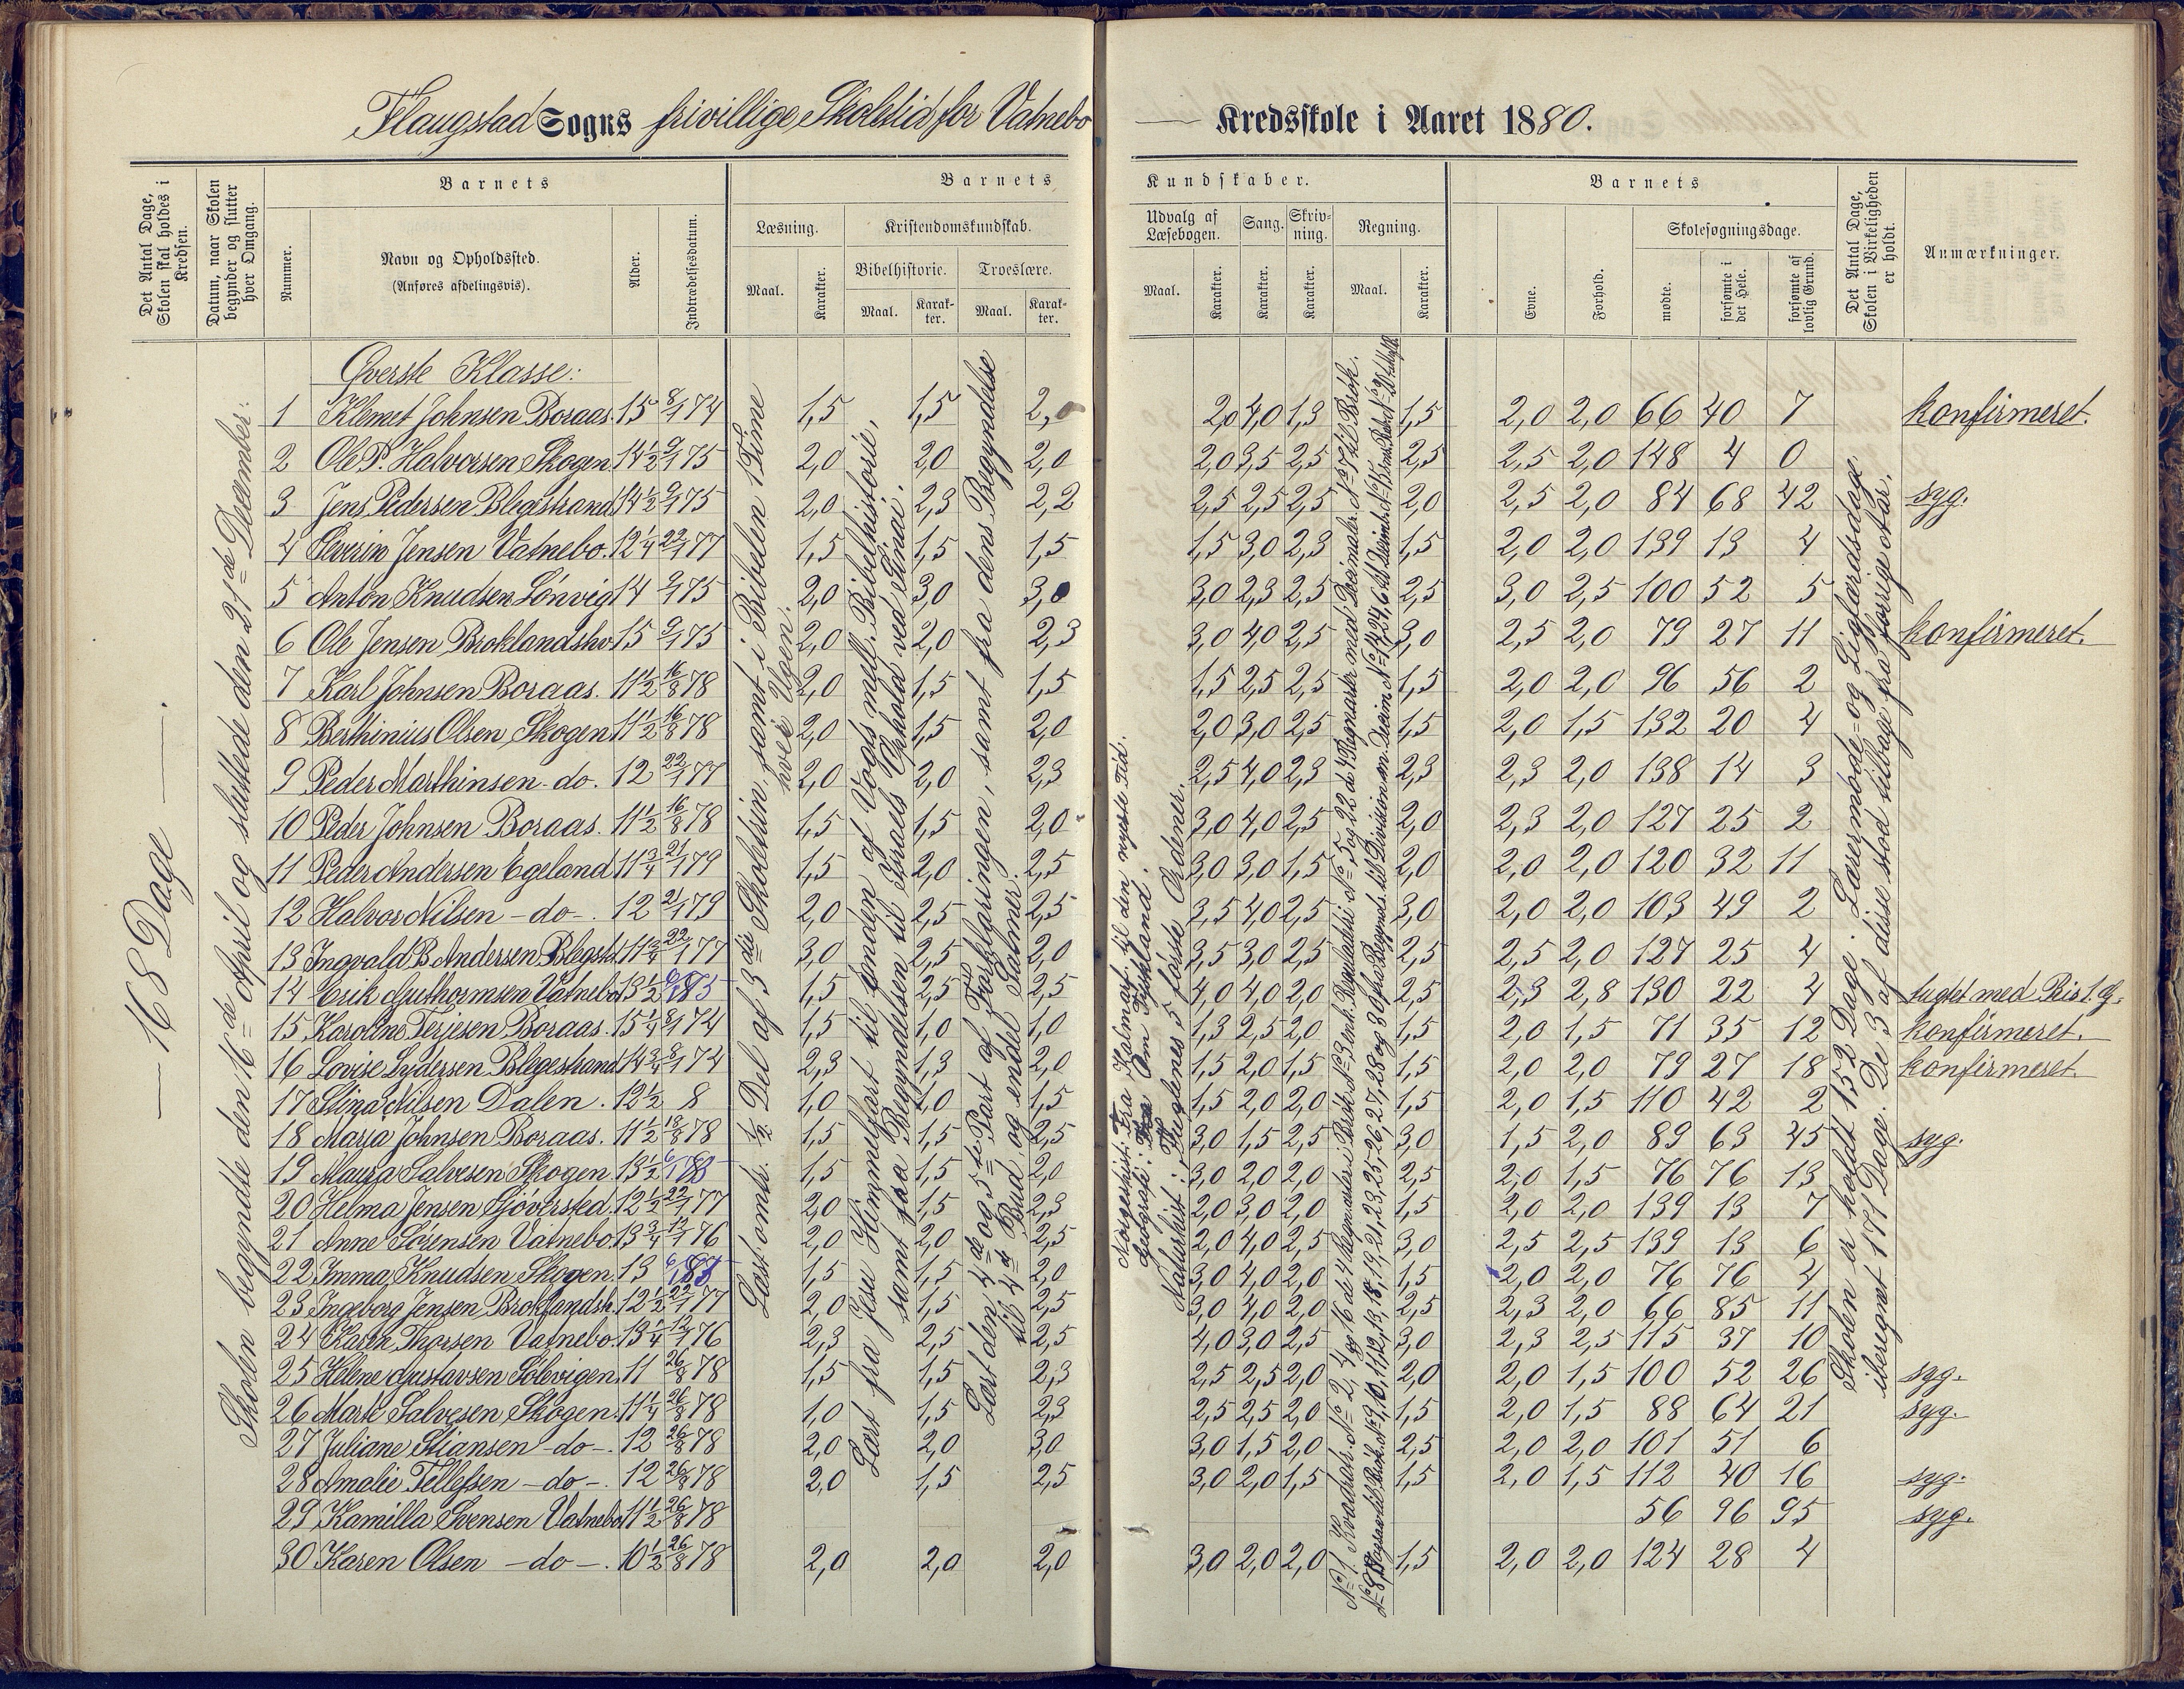 Flaugstad Sogns frivillige Skoletid for Vatnebo Kredsskole i Aaret 1880.
Det Antal Dage, Skolen skal holdes i Kredsen.
Datum, naar Skolen begynder og slutter hver Omgang.
Barnets
Nummer.
Navn og Opholdssted.
(Anføres afdelingsvis).
Alder.
Indtrædelsesdatum.
Barnets Kundskaber.
Læsning.
Maal.
Karakter.
Kristendomskundskab.
Bibelhistorie.
Maal.
Karakter.
Troeslære.
Maal.
Karakter.
Udvalg af Læsebogen.
Maal.
Karakter.
Sang.
Karakter.
Skrivning.
Karakter.
Regning.
Maal.
Karakter.
Barnets
Evne.
Forhold.
Skolesøgningsdage.
mødte.
forsømte i det Hele.
forsømte af lovlig Grund.
Det Antal Dage, Skolen i Virkeligheden er holdt.
Anmærkninger.
— 168 Dage —
Skolen begyndte den 16de April og sluttede den 21de December.
Øverste Klasse:
1 Klemet Johnsen Boraas. 15 8/1 74 1,5 1,5 2,0 2,0 4,0 1,3 1,5 2,0 2,0 66 40 7 konfirmeret.
2 Ole P. Halvorsen Skogen 14½ 9/1 75 2,0 2,0 2,0 2,0 3,5 2,5 2,5 2,5 2,0 148 4 0
3 Jens Pedersen Blegestrand 14½ 9/1 75 2,0 2,3 2,2 2,5 2,5 2,5 2,0 2,5 2,0 84 68 42 syg.
4 Severin Jensen Vatnebo. 12¼ 22/1 77 1,5 1,5 1,5 1,5 3,0 2,3 1,5 2,0 2,0 139 13 4
5 Anton Knudsen Lønvig 14 9/1 75 2,0 3,0 3,0 3,0 2,3 2,5 2,5 3,0 2,5 100 52 5
6 Ole Jensen Broklandsho 15 9/1 75 2,0 2,0 2,3 3,0 4,0 2,5 3,0 2,5 2,0 79 27 11 konfirmeret.
7 Karl Johnsen Boraas. 11½ 16/8 78 2,0 1,5 1,5 1,5 2,5 2,5 1,5 2,0 2,0 96 56 2
8 Berthinius Olsen Skogen 11½ 16/8 78 2,0 1,5 2,0 2,0 3,0 2,5 1,5 2,0 1,5 132 20 4
9 Peder Marthinsen - do. 12 22/1 77 2,0 2,0 2,3 2,5 4,0 2,3 2,3 2,3 2,0 138 14 3
10 Peder Johnsen Boraas. 11½ 16/8 78 1,5 1,5 2,0 3,0 4,0 2,5 2,0 2,3 2,0 127 25 2
11 Peder Andersen Egeland 11¾ 21/1 79 1,5 2,0 2,5 3,0 3,0 1,5 2,0 2,0 2,0 120 32 11
12 Halvor Nilsen - do -. 12 21/1 79 2,0 2,5 2,5 3,5 4,0 2,5 3,0 2,0 2,0 103 49 2
13 Ingvald B. Andersen Blegest. 11¾ 22/1 77 3,0 2,5 2,0 3,5 3,0 2,5 2,5 2,5 2,0 127 25 4
14 Erik Guthormsen Vatnebo 13½ 1,5 2,5 2,5 4,0 4,0 2,0 2,5 2,3 2,8 130 22 4 tugtet med Ris 1 G.
15 Karoline Terjesen Boraas. 15¼ 8/1 74 1,5 1,0 1,0 1,3 2,5 2,0 1,5 2,0 1,5 71 35 12 konfirmeret.
16 Lovise Lydersen Blegestrand 14¾ 8/1 74 2,3 1,3 2,0 1,5 2,0 1,5 1,5 2,0 2,0 79 27 18 konfirmeret.
17 Stina Nilsen Dalen. 12½ 8 1,0 1,0 1,5 1,5 2,0 2,0 1,5 2,0 1,5 110 42 2
18 Maria Johnsen Boraas. 11½ 78 1,5 1,5 2,5 3,0 1,5 2,5 3,0 1,5 2,0 89 63 45 syg.
19 Salvesen Skogen. 13½ 1,5 1,5 2,0 3,0 2,0 2,0 2,5 2,0 1,5 76 76 13
20 Helma Jensen Gjøversted. 12½ 22/1 77 2,0 1,5 2,3 2,0 3,0 2,0 1,5 2,0 2,0 139 13 7
21 Anne Sørensen Vatnebo. 13¾ 76 2,0 2,0 2,5 2,0 4,0 2,5 3,0 2,5 2,5 139 13 6
22 Imma Knudsen Skogen. 13 1,5 1,5 2,0 3,0 4,0 2,0 1,5 2,0 2,0 76 76 4
23 Ingeborg Jensen Broklandsh. 12½ 22/1 77 2,0 1,5 2,5 3,0 4,0 2,0 2,5 2,3 2,0 66 85 11
24 Karen Thorsen Vatnebo. 13¼ 12/1 76 2,3 2,5 2,5 4,0 3,0 2,5 3,0 2,3 2,5 115 37 10
25 Helene Gustavsen Sølevigen. 11 26/8 78 1,5 1,5 2,3 2,5 2,5 2,0 2,0 2,0 1,5 100 52 26 syg.
26 Marte Salvesen Skogen. 11¼ 26/8 78 1,0 1,5 2,3 2,5 2,5 2,0 1,5 2,0 1,5 88 64 21 syg.
27 Juliane Stiansen - do -. 12 26/8 78 2,0 2,0 3,0 3,0 1,5 2,0 2,5 2,0 2,0 101 51 6
28 Amalie Tellefsen - do -. 12 26/8 78 2,0 1,5 2,5 3,0 2,0 1,5 1,5 2,0 1,5 112 40 16 syg.
29 Kamilla Svensen Vatnebo 11½ 26/8 78 56 96 95 syg.
30 Karen Olsen - do -. 10½ 26/8 78 2,0 2,0 2,0 3,0 2,0 2,0 1,5 2,0 2,0 124 28 4
Læst omtr. ½ Del af 3die Skoletrin, samt i Bibelen 1 Time
hver Ugen.
Lært fra Jesu Himmelfart til Enden af Vogts mell. Bibelhistorie,
samt fra Begyndelsen til Israels Ophold ved Sinai.
Lært den 4de og 5te Part af Forklaringen, samt fra dens Begyndelse
til 4de Bud, og endel Salmer.
Norgeshist: Fra Kalmark. til den nyeste Tid.
Geografi: Om Tyskland.
Naturhist: Fuglenes 5 første Ordener.
Skolen er holdt 152 Dage. Lærermøde- og Ligfærdsdage
iberegnet 171 Dage. De 3 af disse stod tilbage fra forrige Aar.